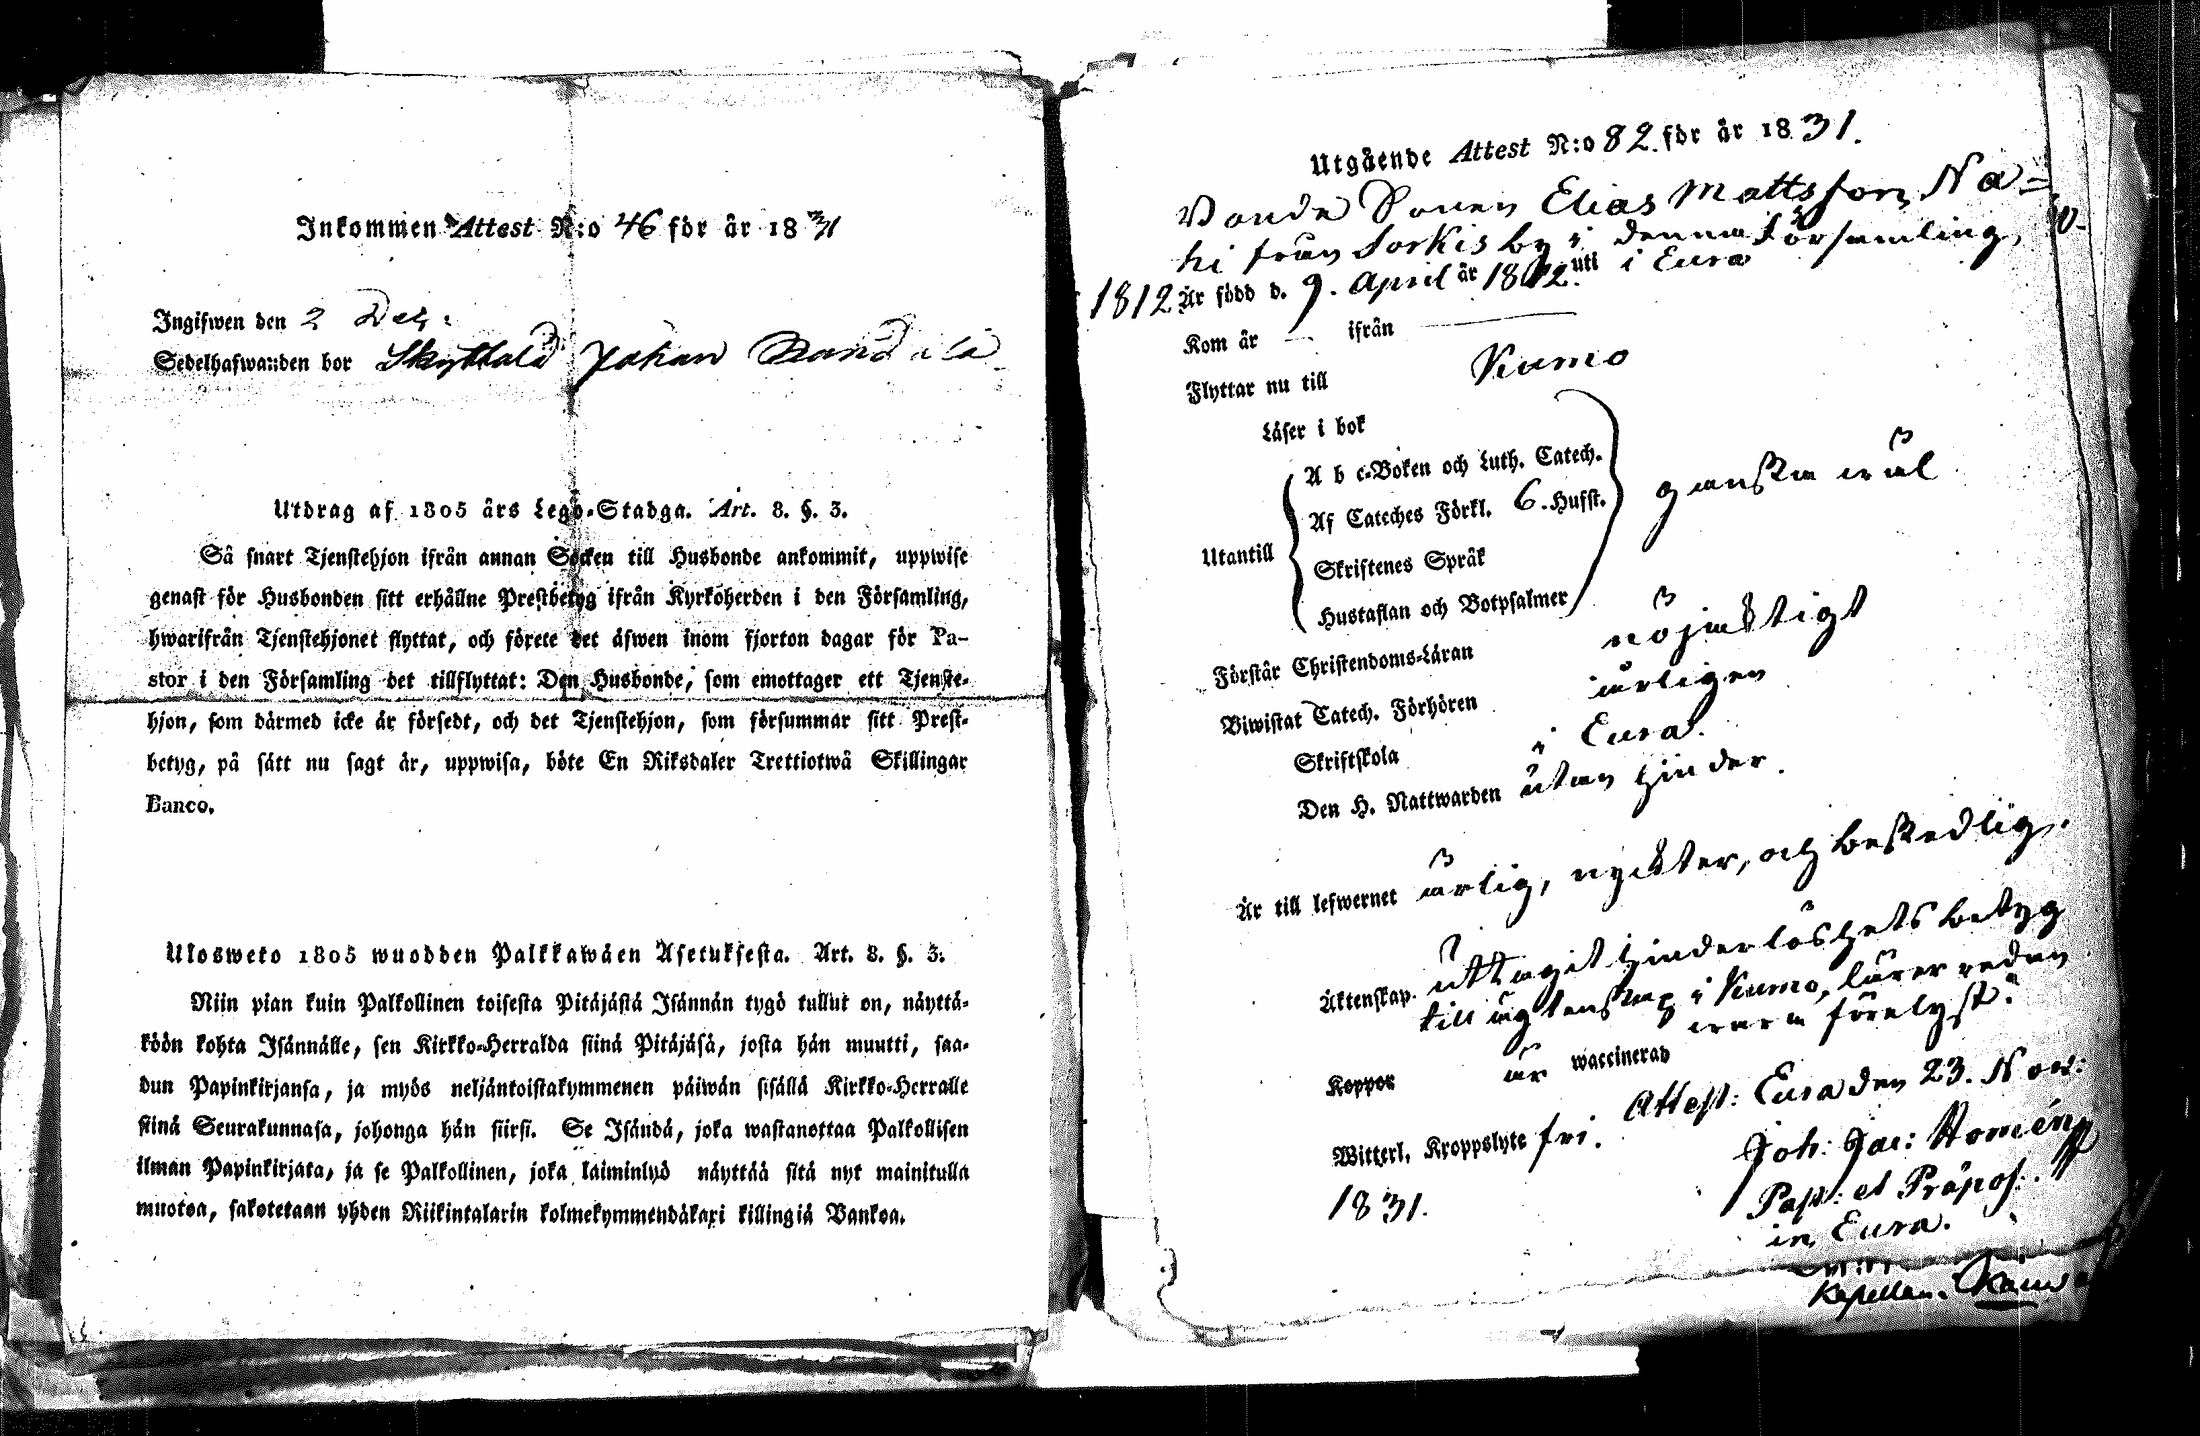 Inkommen Attest N:o 46 för år 1831
Ingifwen den 2 Dec:
Sedelhafwanden bor Skyttalä Johan
Utdrag af 1805 års Lego-Stadga. Art. 8. §. 3.
Så snart Tjenstehjon ifrån annan Socken till Husbonde ankommit, uppwise
genast för Husbonden sitt erhållne Prestbetyg ifrån Kyrkoherden i den Församling,
hwarifrån Tjenstehjonet flyttat, och förete det äfwen inom fjorton dagar för Pa-
stor i den Församling det tillflyttat: Den Husbonde, som emottager ett Tjenste-
hjon, som därmed icke är försedt, och det Tjenstehjon, som försummar sitt Prest-
betyg, på sätt nu sagt är, uppwisa, böte En Riksdaler Trettiotwå Skillingar
Banco.
Ulosweto 1805 wuodden Palkkawäen Asetuksesta. Art. 8. §. 3.
Niin pian kuin Palkollinen toisesta Pitäjästä Isännän tygö tullut on, näyttä-
köön kohta Isännälle, sen Kirkko-Herralda siinä Pitäjäsä, josta hän muutti, saa-
dun Papinkirjansa, ja myös neljäntoistakymmenen päiwän sisällä Kirkko-Herralle
siinä Seurakunnasa, johonga hän siirsi. Se Isändä, joka wastanottaa Palkollisen
ilman Papinkirjata, ja se Palkollinen, joka laiminlyö näyttää sitä nyt mainitulla
muotoa, sakotetaan yhden Riikintalarin kolmekymmendäkaxi killingiä Bankoa.
Utgående Attest N:o 82. för år 1831.
Bonde Sonen Elias Mattsson Na=
hi från Sorkis by i denna Församling,
1812 Är född d. 9. April år 1812. uti i Eura
Kom år — ifrån —
Flyttar nu till Kumo
Läser i bok
Utantill
A b c-Boken och Luth. Catech.
Af Cateches Förkl. 6. Hufst.
Skriftenes Språk
Hustaflan och Botpsalmer
ganska wäl
Förstår Christendoms-Läran nöjaktigt
Biwistat Catech. Förhören årligen
Skriftskola i Eura.
Den H. Nattwarden utan hinder.
Är till lefwernet ärlig, nyckter, och beskedlig.
Äktenskap. uttagit hinderlöshets betyg
till ägtenskap i Kumo, lärer redan
wara förelyst.
Koppor är waccinerad
Witterl. Kroppslyte fri. Attest: Eura den 23. Nov:
1831. Joh: Jac: Homén
Past: et Præpos:
in Eura.
Kapellan.